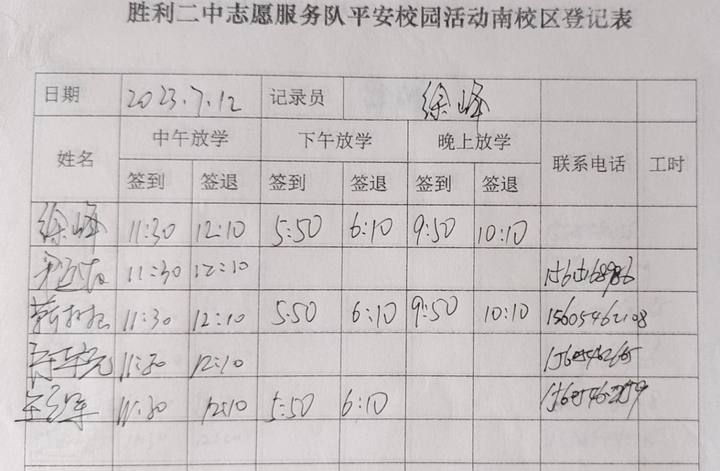 胜利二中志愿服务队平安校园活动南校区登记表
日期 2023.7.12 记录员 徐峰
姓名 中午放学 下午放学 晚上放学 联系电话 工时
签到 签退 签到 签退 签到 签退
徐峰 11:30 12:10 5:50 6:10 9:50 10:10
11:30 12:10
11:30 12:10 5:50 6:10 9:50 10:10 15605462108
11:30 12:10
11:30 12:10 5:50 6:10